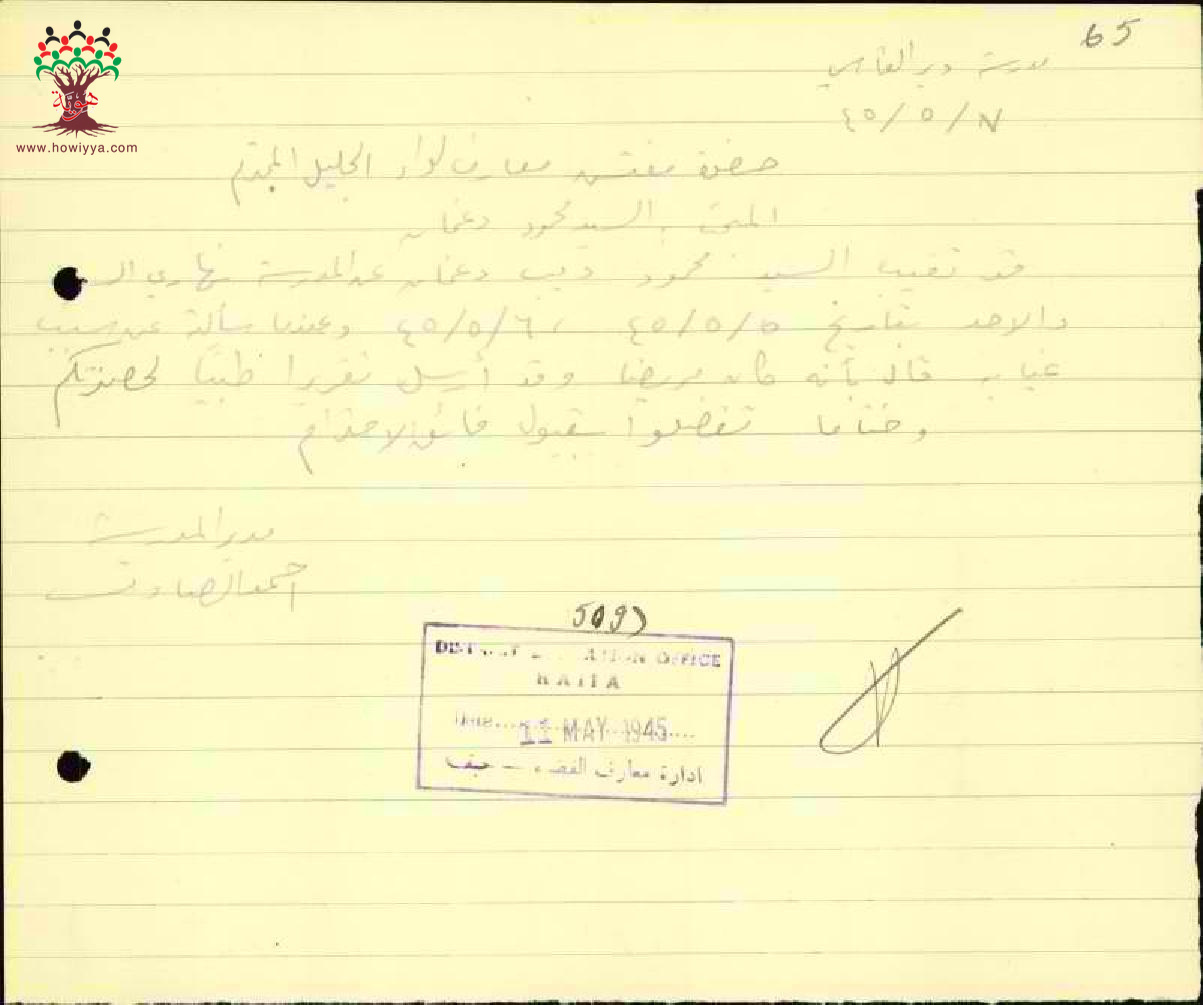 65
هوية
www.howiyya.com
مدرسة دير القاسي
٤٥/٥/٧
حضرة مفتش معارف لواء الجليل المحترم
السيد محمود دغمان
قد تغيب السيد محمود ذيب دغمان عن المدرسة نهاري
والاحد بتاريخ ٤٥/٥/٥ ، ٤٥/٥/٦ وعندما سألته عن سبب
غيابه قال بأنه كان مريضا وقد أرسل تقريرا طبيا لحضرتكم
وختاما تفضلوا بقبول فائق الاحترام
مدير المدرسة
احمد الصادق
DISTRICT EDUCATION OFFICE
HAIFA
Date 11 MAY 1945
ادارة معارف القضاء - حيفا